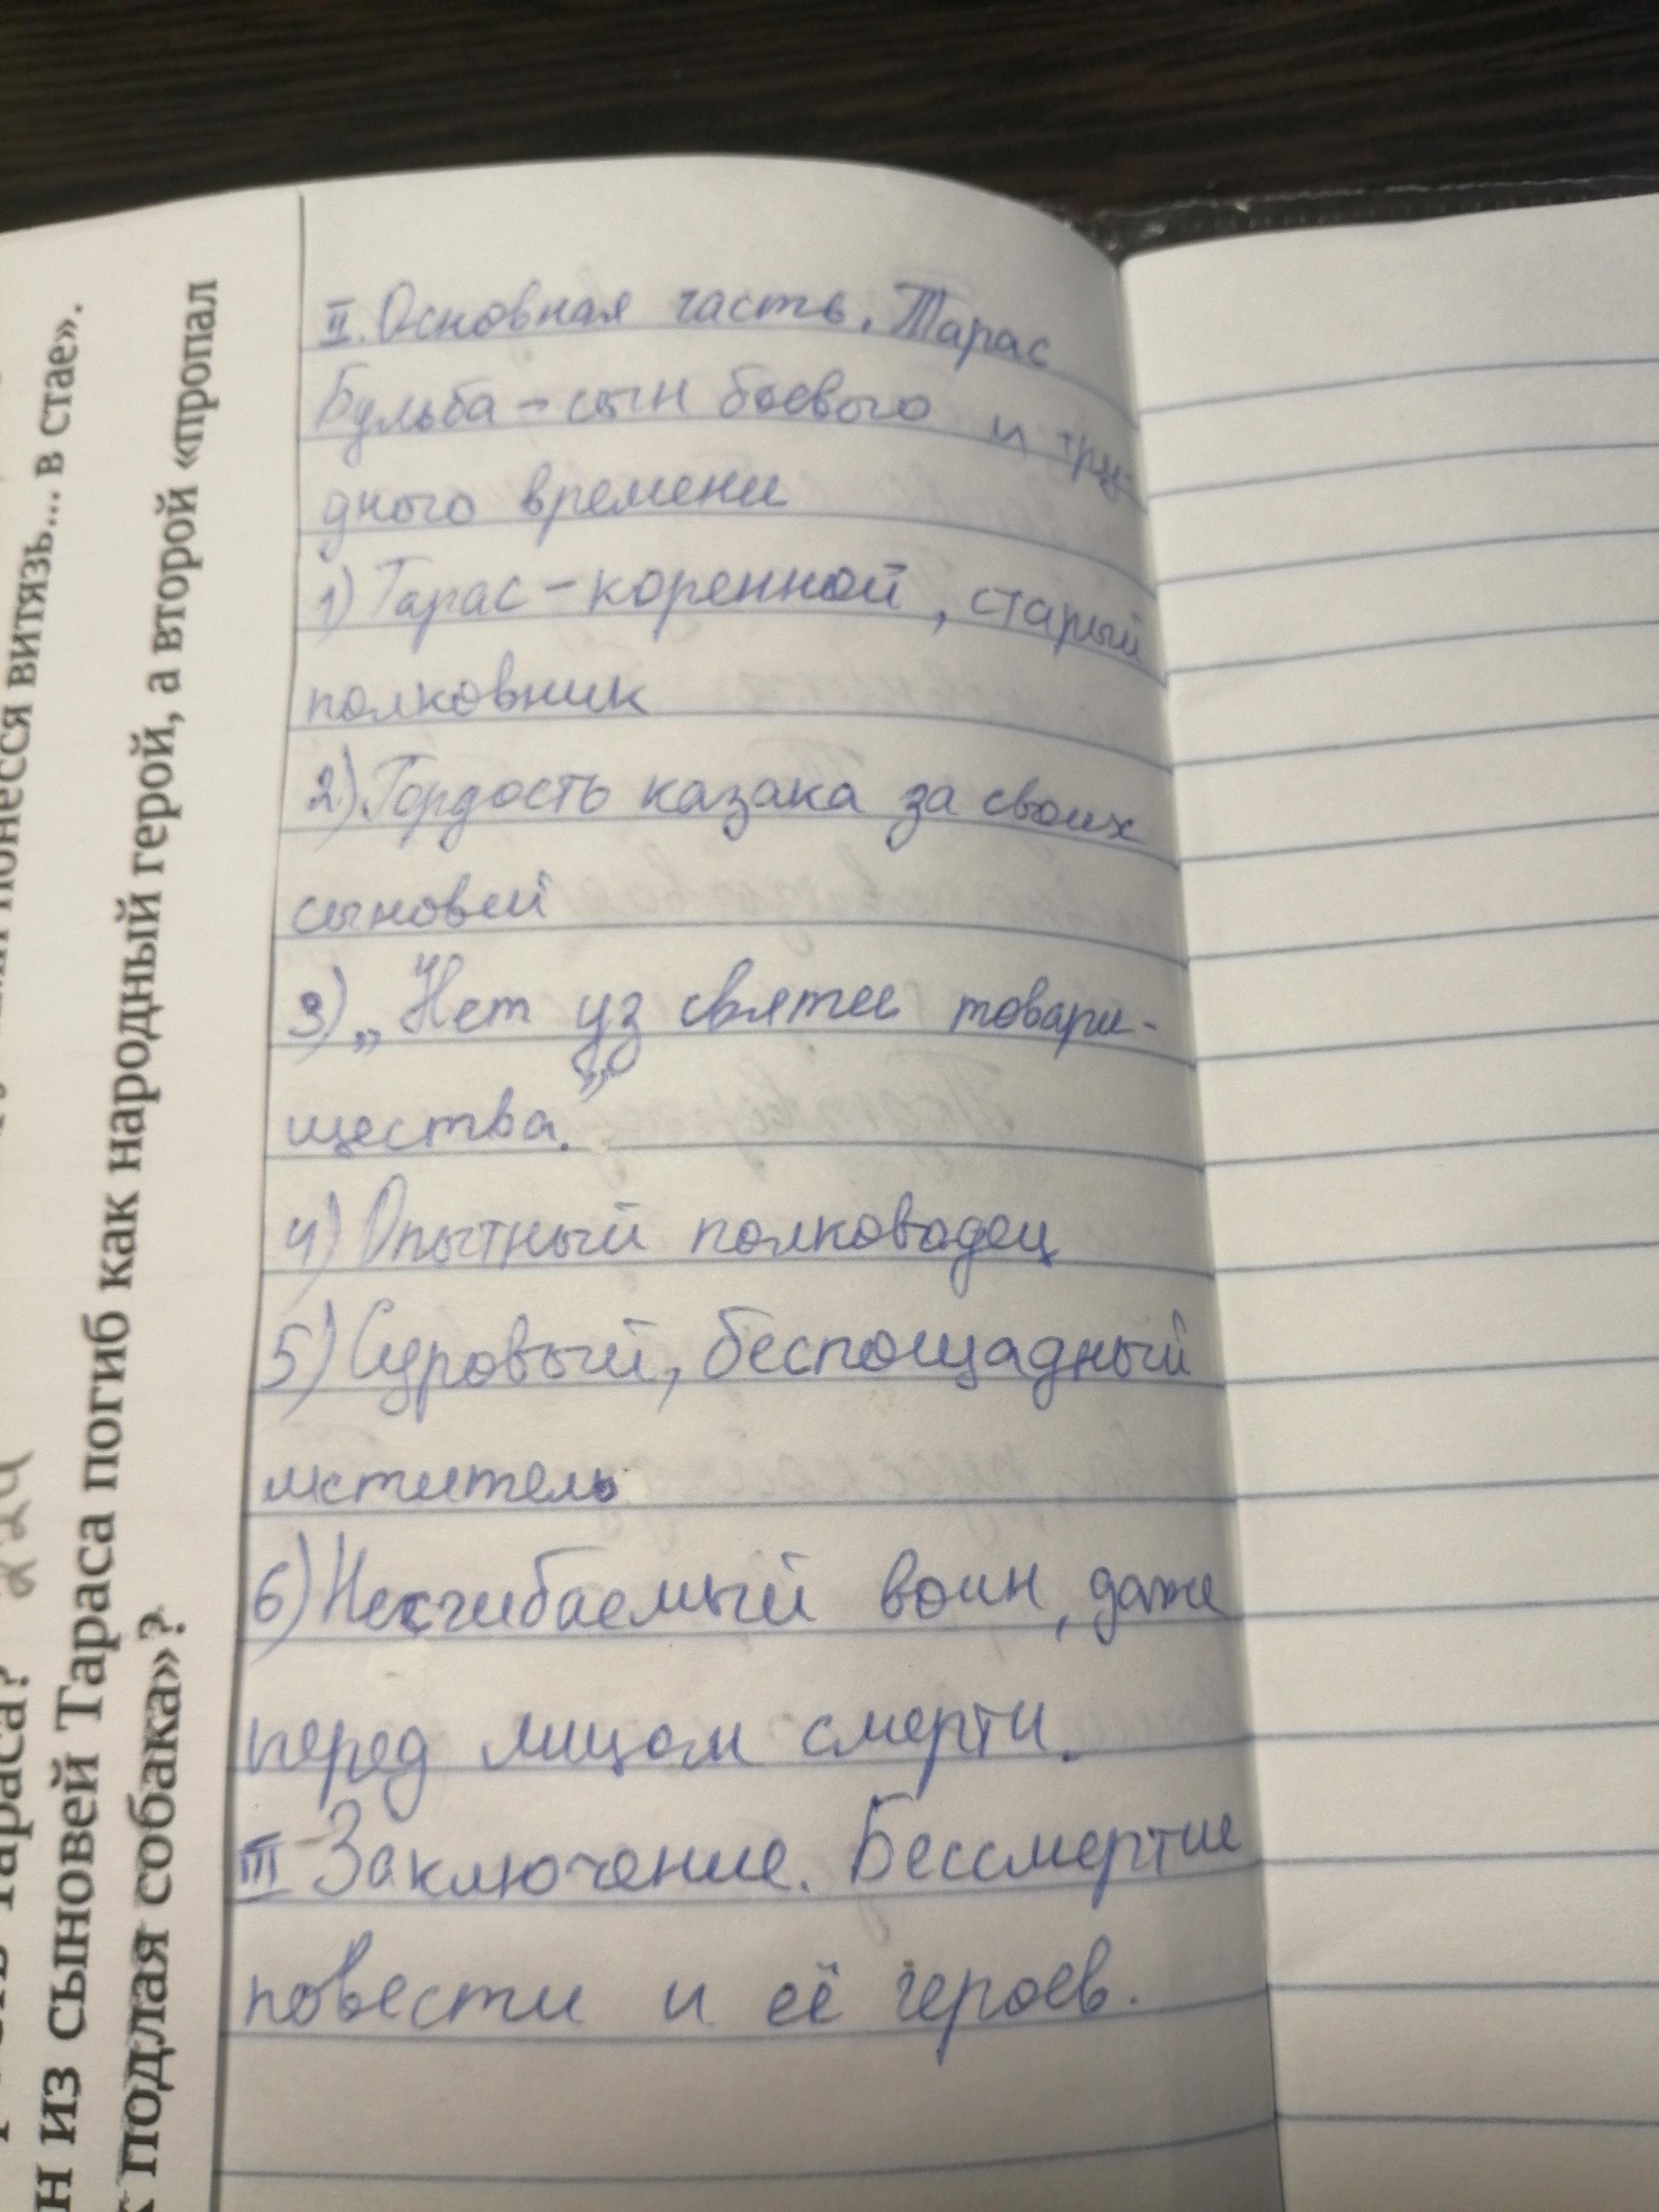 понесся витязь... в стае».
Тараса?
н из сыновей Тараса погиб как народный герой, а второй «пропал
к подлая собака»?
II. Основная часть. Тарас
Бульба – сын боевого и тру-
дного времени
1) Тарас – коренной, старый
полковник
2) Гордость казака за своих
сыновей
3) „Нет уз святее товари-
щества."
4) Опытный полководец
5) Суровый, беспощадный
мститель
6) Несгибаемый воин, даже
перед лицом смерти.
III Заключение. Бессмертие
повести и её героев.